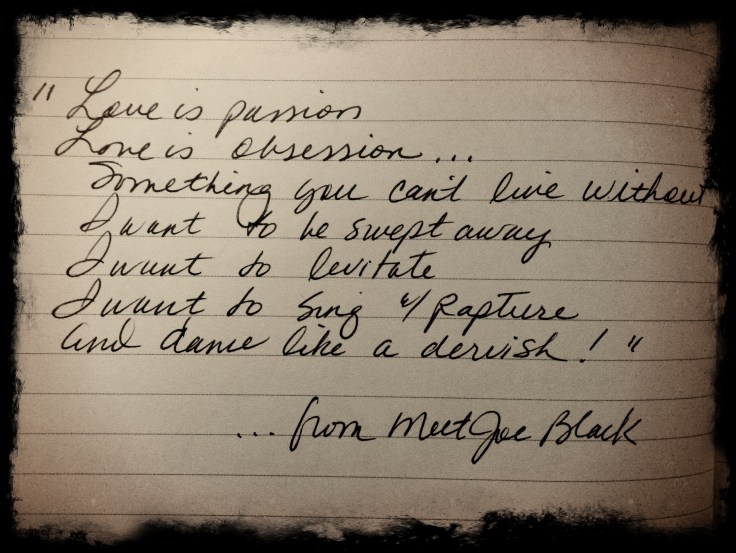 " Love is passion
Love is obsession...
Something you can't live without
I want to be swept away
I want to levitate
I want to sing w/ Rapture
and dance like a dervish! "
... from Meet Joe Black